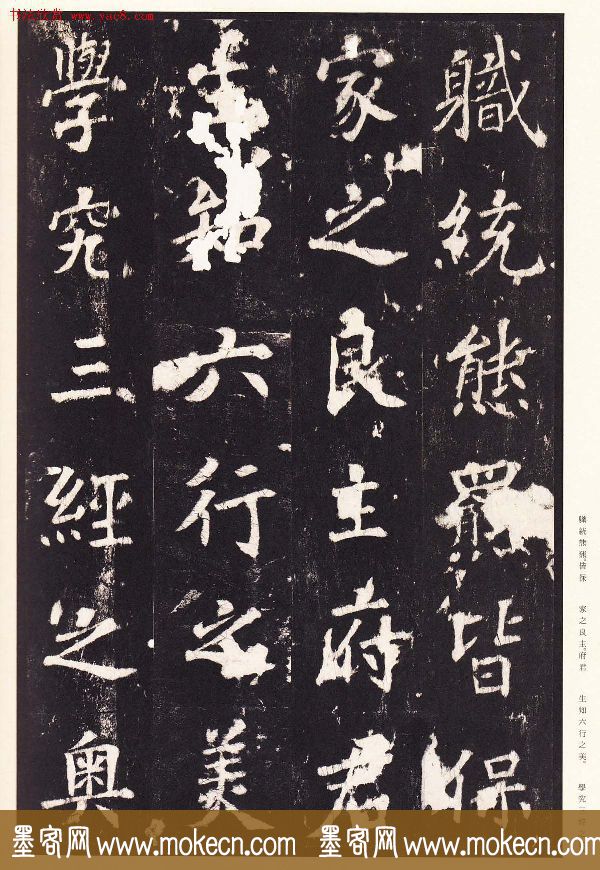 书法欣赏 www.yac8.com
職統熊羆皆保
家之良主府君
生知六行之美
學究三經之奥
職統熊羆。皆保
家之良主。府君
生知六行之美。
學究三
墨客网 www.mokecn.com 墨客网 www.mokecn.com